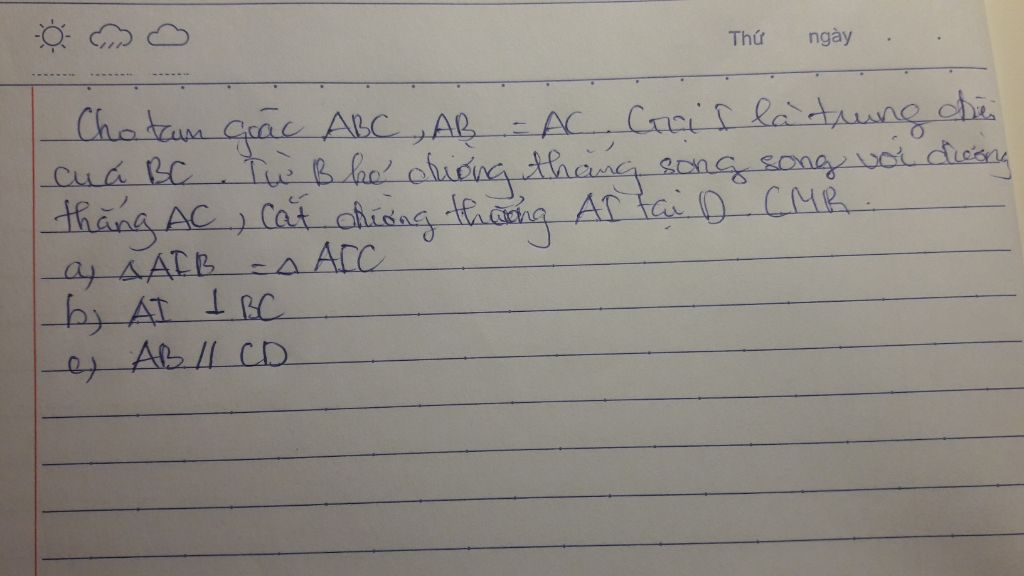 Thứ ngày . .
Cho tam giác ABC, AB = AC. Gọi I là trung điể
của BC. Từ B kẻ đường thẳng song song với đường
thẳng AC, cắt đường thẳng AI tại D. CMR.
a, △AIB = △ AIC
b, AI ⊥ BC
c, AB // CD